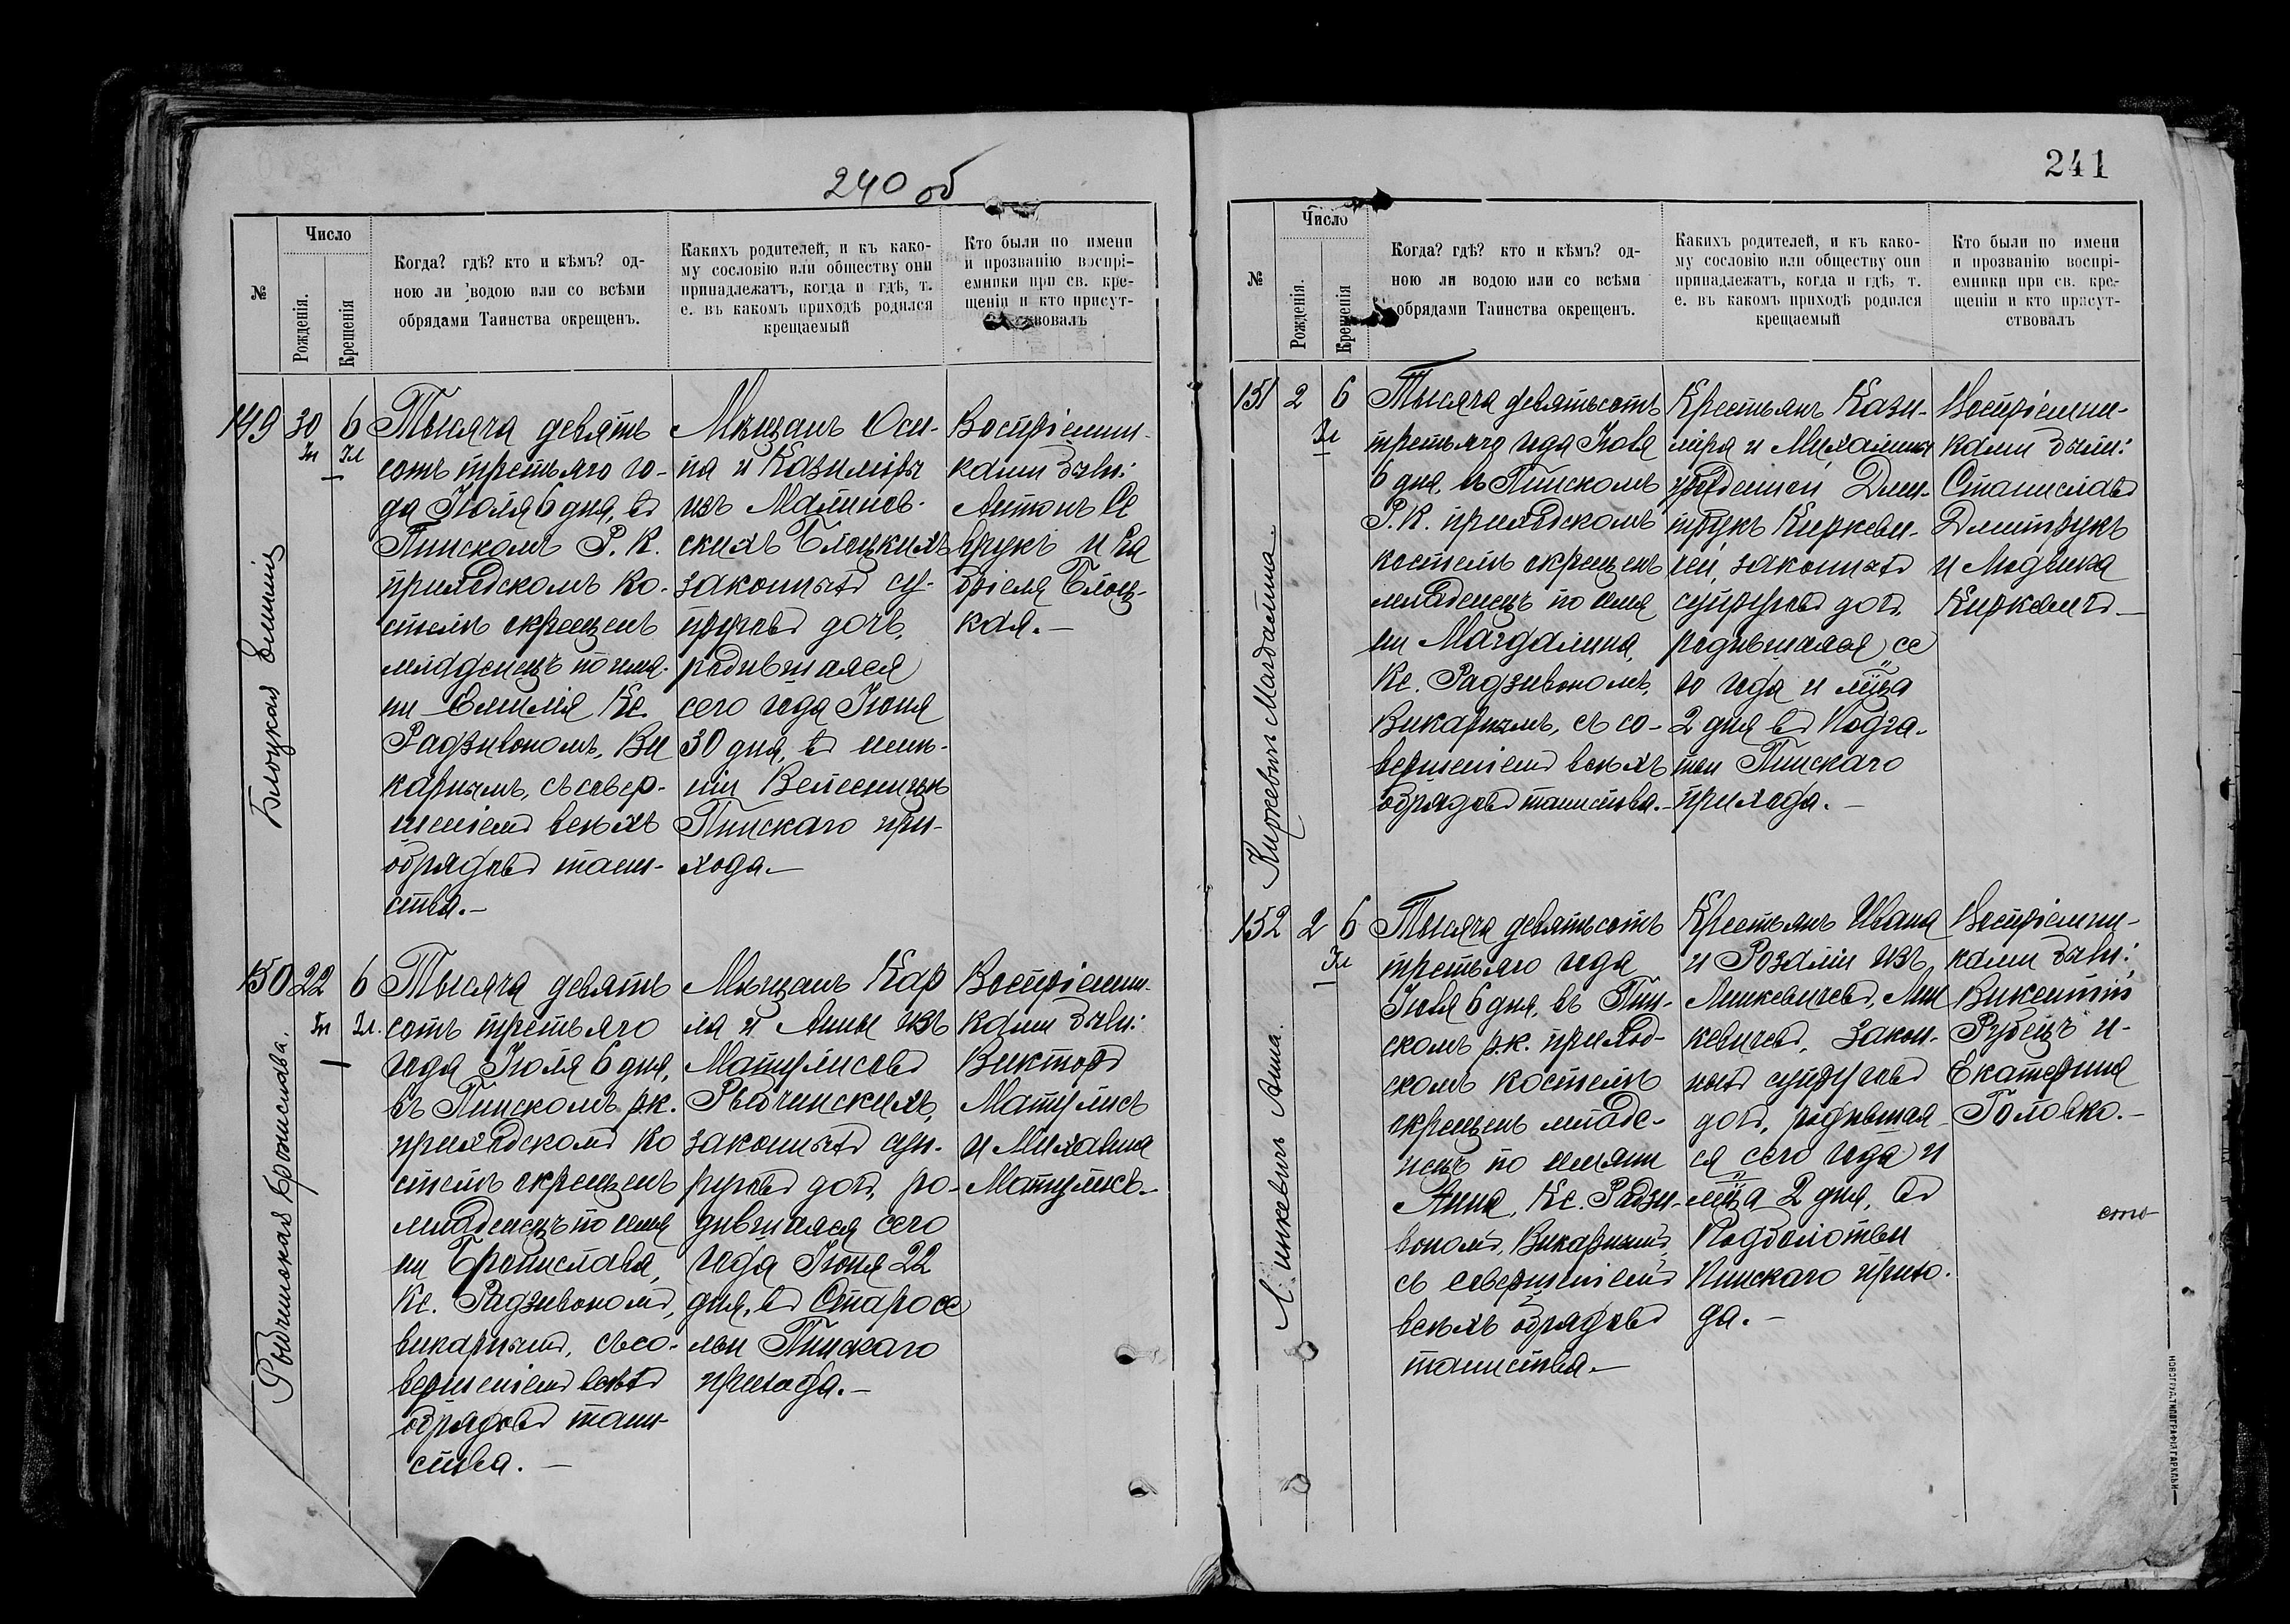 240 об
№
Число
Рожденія.
Крещенія
Когда? гдѣ? кто и кѣмъ? од-
ною ли водою или со всѣми
обрядами Таинства окрещенъ.
Какихъ родителей, и къ како-
му сословію или обществу они
принадлежатъ, когда и гдѣ, т.
е. въ какомъ приходѣ родился
крещаемый
Кто были по имени
и прозванію воспрі-
емники при св. кре-
щеніи и кто присут-
ствовалъ
Блоцкая Емилія
149
30
Іп
6
Іл
Тысяча девять
сотъ третьяго го-
да Іюля 6 дня, въ
Пинскомъ Р. К.
приходскомъ ко-
стелѣ окрещенъ
младенецъ по имя-
ни Емилія Кс.
Радзивономъ, Ви
карнымъ, съ совер-
шеніемъ всѣхъ
обрядовъ таин-
ства.—
Мѣщанъ Оси-
па и Казиміры
изъ Малинов-
скихъ Блоцкихъ
законныхъ су-
пруговъ дочь,
родившаяся
сего года Іюня
30 дня, въ имѣ-
ніи
Пинскаго при-
хода.—
Воспріемни-
ками были:
Антонъ
и Га
бріеля Блоц-
кая.—
Рыдчинская Бронислава.
150
22
Іп
6
Іл.
Тысяча девять
сотъ третьяго
года Іюля 6 дня,
въ Пинскомъ р.к.
приходскомъ ко
стелѣ окрещенъ
младенецъ по имя
ни Бронислава,
Кс. Радзивономъ,
викарнымъ, съ со-
вершеніемъ всѣхъ
обрядовъ таин-
ства.—
Мѣщанъ Кар
ла и Анны изъ
Матулисовъ
Рыдчинскихъ,
законныхъ суп-
руговъ дочь, ро-
дившаяся сего
года Іюня 22
дня, въ Старосе
льи Пинскаго
прихода.—
Воспріемни-
ками были:
Викторъ
Матулисъ
и Михалина
Матулисъ.—
241
№
Число
Рожденія.
Крещенія
Когда? гдѣ? кто и кѣмъ? од-
ною ли водою или со всѣми
обрядами Таинства окрещенъ.
Какихъ родителей, и къ како-
му сословію или обществу они
принадлежатъ, когда и гдѣ, т.
е. въ какомъ приходѣ родился
крещаемый
Кто были по имени
и прозванію воспрі-
емники при св. кре-
щеніи и кто присут-
ствовалъ
Киркевичъ Магдалина.
151
2
6
Іл
Тысяча девятьсотъ
третьяго года Іюля
6 дня, въ Пинскомъ
Р. К. приходскомъ
костелѣ окрещенъ
младенецъ по имя
ни Магдалина,
Кс. Радзивономъ,
Викарнымъ, съ со-
вершеніемъ всѣхъ
обрядовъ таинства.—
Крестьянъ Кази-
міра и Михалины
урожденной Дми-
трукъ Киркеви-
чей, законныхъ
супруговъ дочь,
родившаяся се
го года и мѣца
2 дня въ
Пинскаго
прихода.—
Воспріемни-
ками были:
Станиславъ
Дмитрукъ
и Людвика
Киркевичъ.—
Линкевичъ Анна.
152
2
6
Іл
Тысяча девятьсотъ
третьяго года
Іюля 6 дня, въ Пин-
скомъ р.к. приход-
скомъ костелѣ
окрещенъ младе-
нецъ по имяни
Анна, Кс. Радзи-
вономъ, Викарнымъ,
съ совершеніемъ
всѣхъ обрядовъ
таинства.—
Крестьянъ Ивана
и Розаліи изъ
Линкевичевъ, Лин
кевичевъ, закон-
ныхъ супруговъ
дочь, родившая-
ся сего года и
мѣца 2 дня, въ
Подболотьи
Пинскаго прихо-
да.—
Воспріемни-
ками были:
Викентій
Рубецъ и
Екатерина
Головко.—